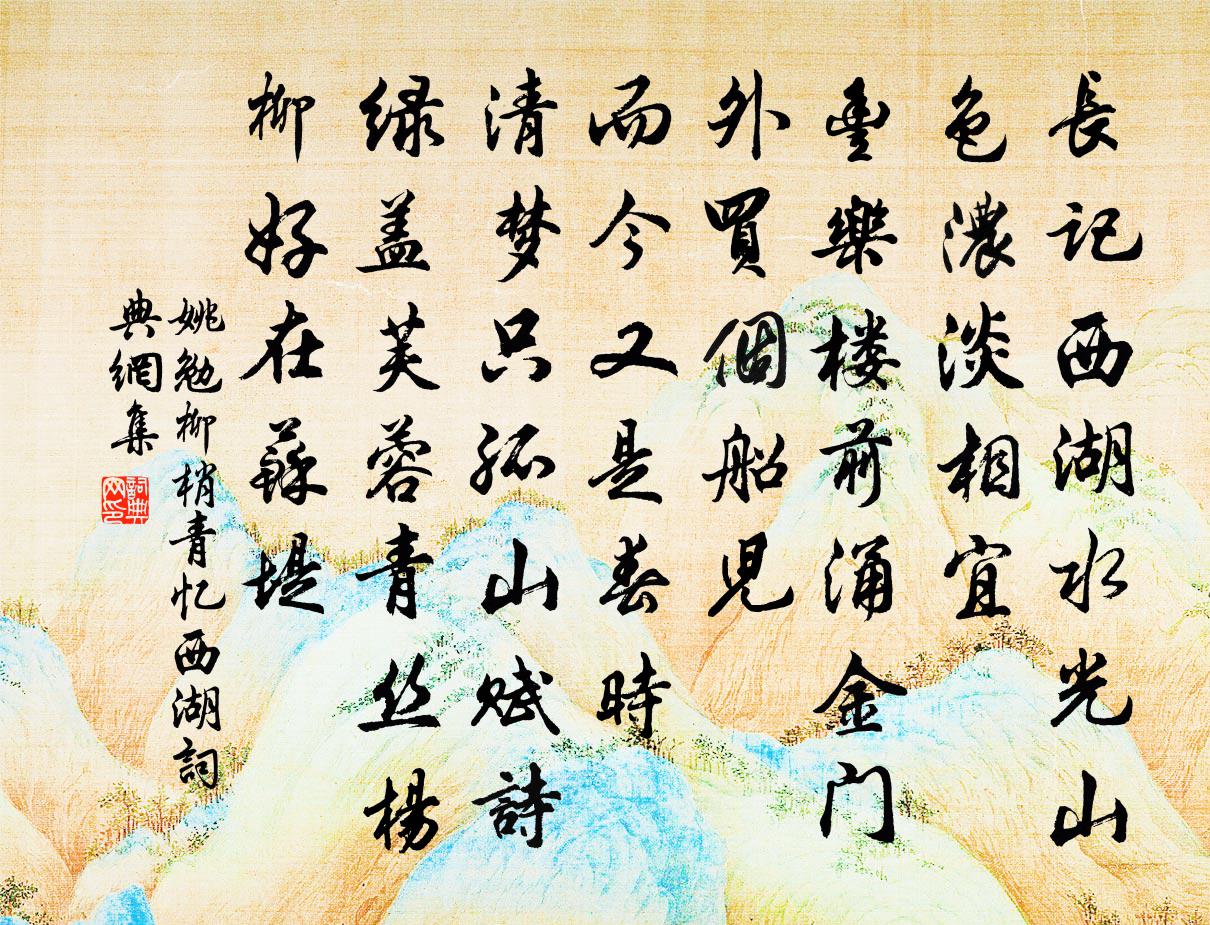 長记西湖水光山
色濃淡相宜
豊樂楼前涌金门
外買個船児
而今又是春時
清梦只孤山賦詩
绿盖芙蓉青丝楊
柳好在蘇堤
姚勉柳梢青忆西湖詞
典網集
詞典网印